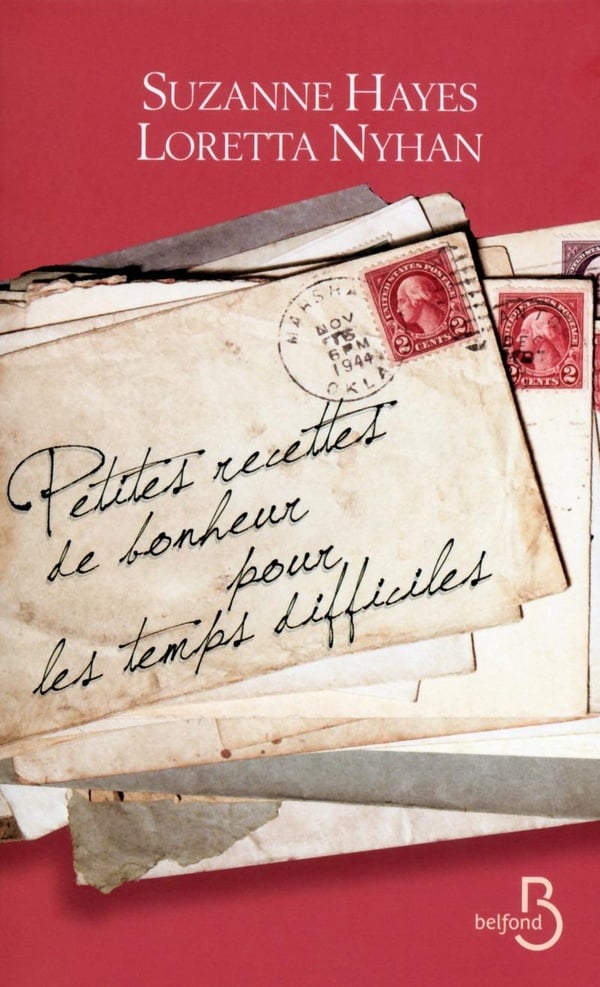 SUZANNE HAYES
LORETTA NYHAN
UNITED STATES POSTAGE
2 CENTS 2
MARSHA
NOV
6 PM
1944
OKLA
2
CENTS 2
Petites recettes
de bonheur
pour
les temps difficiles
belfond